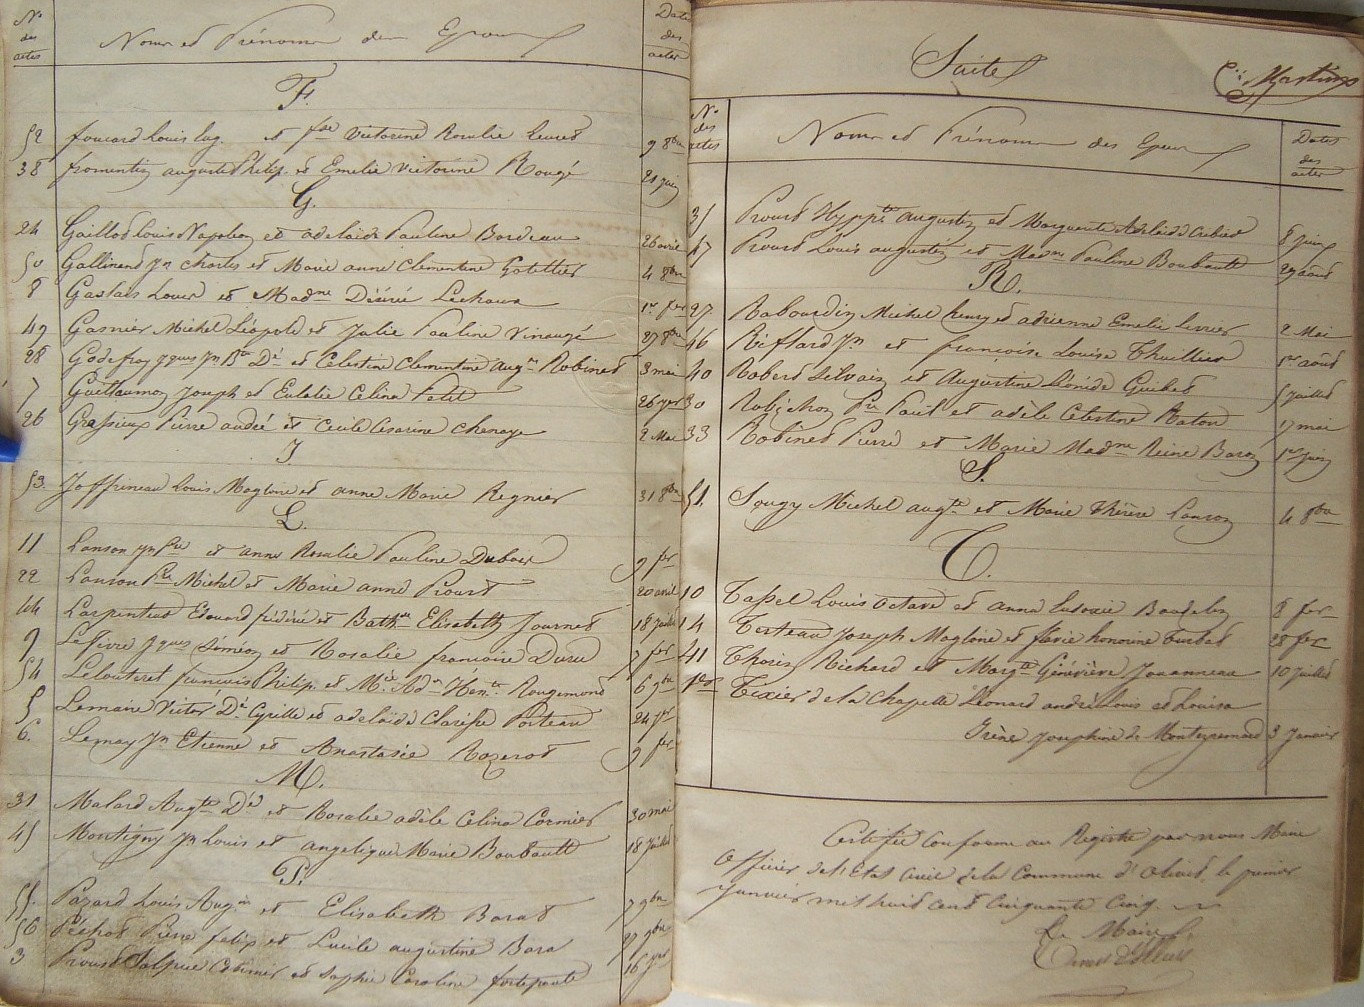 Nos des actes
Noms et Prénoms des Epoux
Dates des actes
F.
52 foucard Louis Eug. et fse Victorine Rosalie 9 8bre
38 fromentin auguste Philip. et Emelie Victorine Rougé 21 juin
G.
24 Gaillod Louis Napoléon et adelaide Pauline Bordeau 26 avril
50 Gallinand Jn Charles et Marie anne Clementine Gotellier 4 8bre
8 Gaslais Louis et Madne Désiré Lechoux 1er fer
49 Gasnier Michel Léopold et Julie Pauline Vinaugé 27 8bre
28 Godefroy Jques Jn Bte Dé et Celestine Clementine Augne Robined 3 mai
7 Guillaumon Joseph et Eulalie Celina Petit 26 jer
26 Grassieux Pierre andré et Cecile Cesarine Chenaye 2 Mai
J.
53. Joffrineau Louis Magloire et anne Marie Regnier 31 8bre
L.
11 Lanson Jn Pre et anne Rosalie Pauline Dubois 9 fer
22 Lanson Pre Michel et Marie anne Proust 20 avril
44 Carpentier Edouard frédéric et Bathe Elisabeth Journet 18 Juillet
9 Lefevre Jques Siméon et Rosalie francoise Duru 7 fer
54 Lelouteret francois Philip. et Mie Adn Honte Rougemond 6 9bre
5 Lemaire Victor Dé Cyrille et adelaide Clarisse Porteau 24 jer
6. Lemay Jn Etienne et Anastasie Rozerot 9 fer
M.
31 Malard Augte Dé et Rosalie adèle Celina Cormier 30 mai
45 Montigny Jn Louis et angelique Marie Boubault 18 Juillet
P.
55. Pazard Louis Augin et Elisabeth Barat 7 9bre
56 Péchot Pierre felix et Lucile augustine Bara 27 9bre
3 Proust Sulpice Casimir et Sophie Caroline 16 jer
Suite
Nos des actes
Noms et Prénoms des Epoux
Dates des actes
35 Proust Hyppte augustin et Marguerite Adelaide 8 juin
47 Proust Louis augustin et Madne Pauline Boubault 29 aout
R.
27 Rabourdin Michel henry et adrienne Emelie 2 Mai
46 Riffard Jn et francoise Louise Thuillier 1er août
40 Robert Silvain et Augustine Léonide Guibet 5 juillet
30 Robichon Pre Paul et adèle Celestine Raton 17 mai
33 Robined Pierre et Marie Madne Reine Baron 1er juin
S.
51. Sougy Michel augte et Marie Thérèse Lanson 4 8bre
T.
10 Tassel Louis Octave et anna Ludoxie Baudelon 8 fer
14 Terteau Joseph Magloire et flavie honorine 28 fer
41 Thorin Richard et Margte Généviève Jouanneau 10 juillet
1er Texier de la Chapelle Léonard andré Louis et Louisa
Irène Josephine de Monteyremard 3 Janvier
Certifié Conforme au Registre par nous Maire
Officier de l'Etat Civil de la Commune d'Olivet le premier
Janvier mil huit cent Cinquante Cinq.
Le Maire